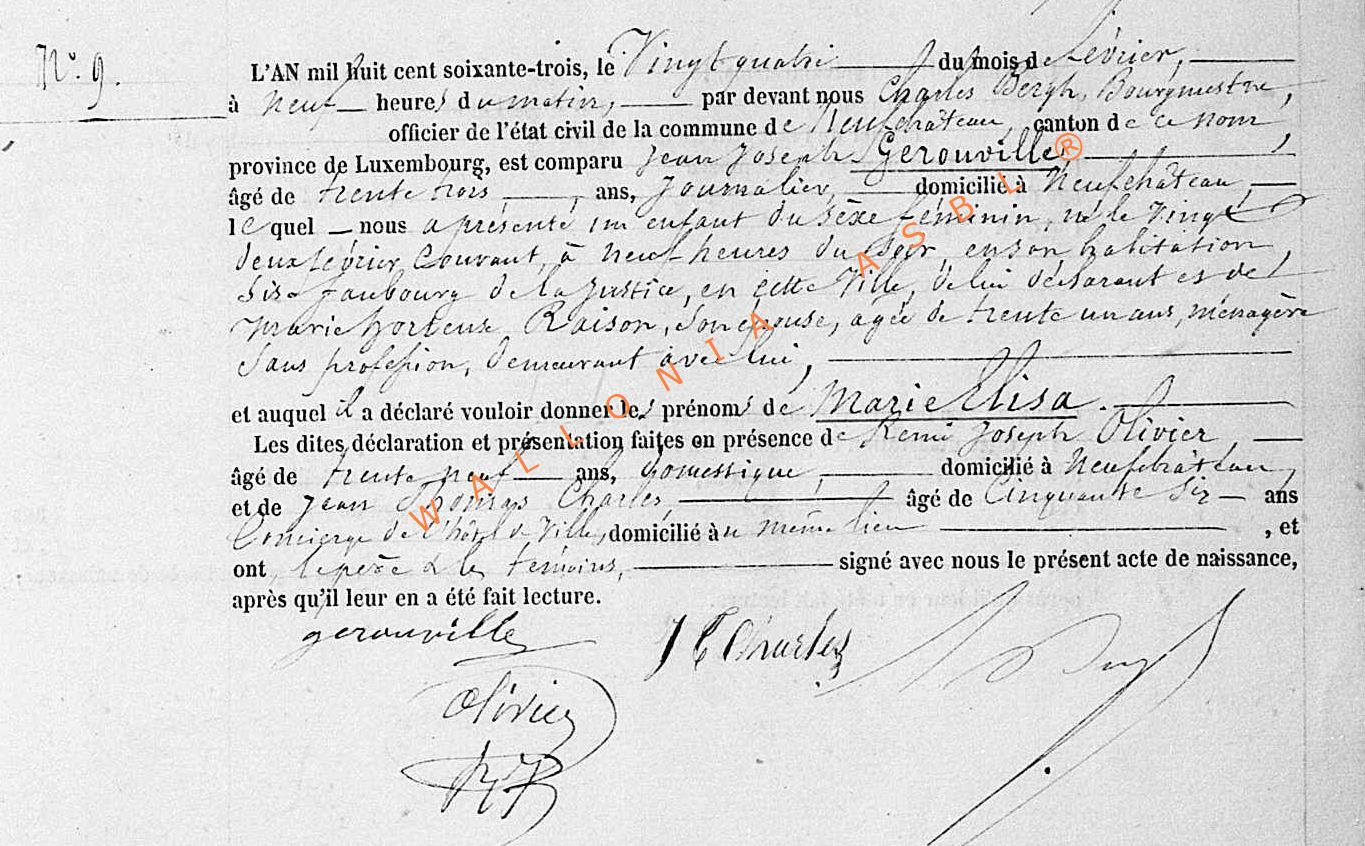 N.o 9.
L'AN mil huit cent soixante-trois, le Vingt quatre du mois de février,
à Neuf heures du matin, par devant nous Charles Bergh, Bourgmestre,
officier de l'état civil de la commune de Neufchâteau, canton de ce nom,
province de Luxembourg, est comparu Jean Joseph Gerouville,
âgé de trente trois, ans, Journalier, domicilié à Neufchâteau,
lequel nous a présenté un enfant du sexe féminin, né le Vingt
deux février Courant, à neuf heures du soir, en son habitation,
sise faubourg de la Justice, en cette Ville, de lui déclarant et de
Marie hortense Raison, son épouse, agée de trente un ans, ménagère
Sans profession, demeurant avec lui,
et auquel il a déclaré vouloir donner les prénoms de Marie Elisa.
Les dites déclaration et présentation faites en présence de Remi Joseph Olivier,
âgé de trente neuf ans, domestique, domicilié à Neufchâteau,
et de Jean Thomas Charles, âgé de Cinquante six ans
Concierge de l'hôtel de Ville, domicilié au même lieu, et
ont, le père & les témoins, signé avec nous le présent acte de naissance,
après qu'il leur en a été fait lecture.
gerouville
J T Charles
Olivier
WALLONIA ASBL ®